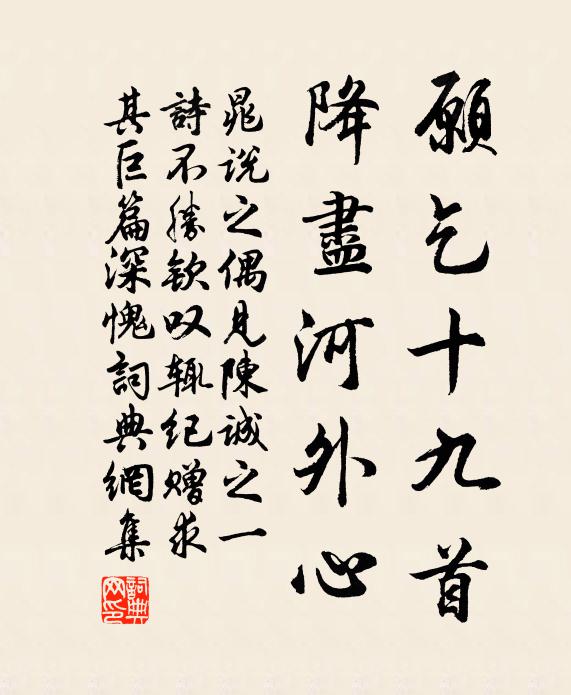 願乞十九首
降盡河外心
晁説之偶見陳誠之一
詩不勝欽叹輒纪赠求
其巨篇深愧詞典網集
詞典网印